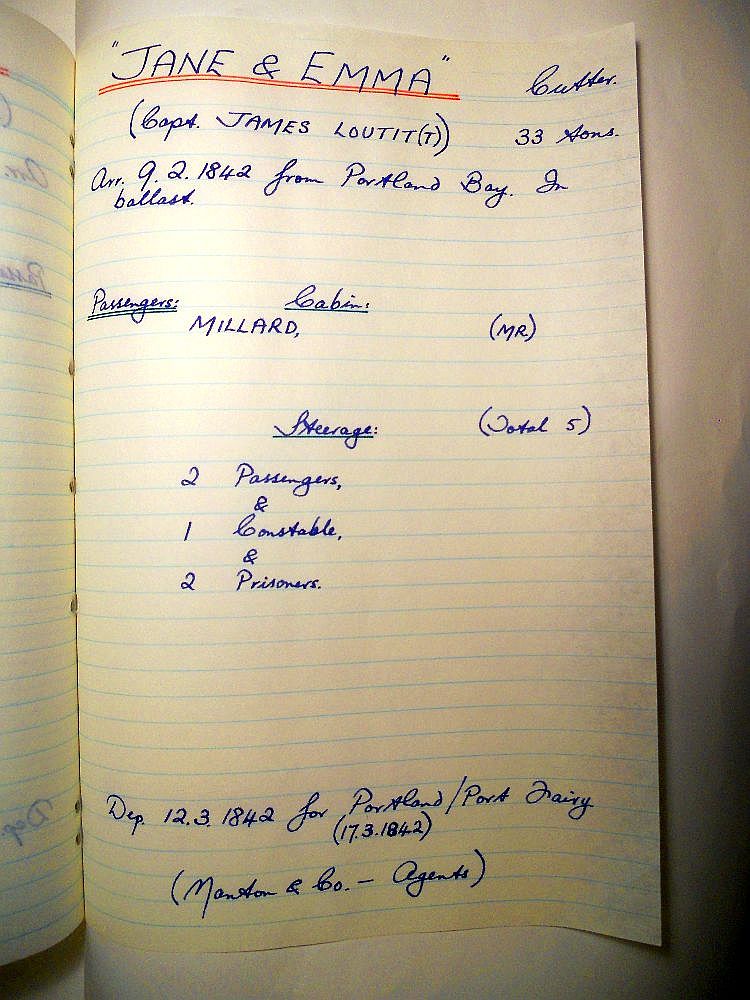 "JANE & EMMA" Cutter.
(Capt. JAMES LOUTIT(T)) 33 Tons.
Arr. 9.2.1842 from Portland Bay. In
ballast.
Passengers: Cabin:
MILLARD, (MR)
Steerage: (Total 5)
2 Passengers,
&
1 Constable,
&
2 Prisoners.
Dep. 12.3.1842 for Portland/Port Fairy
(17.3.1842)
(Manton & Co. – Agents)